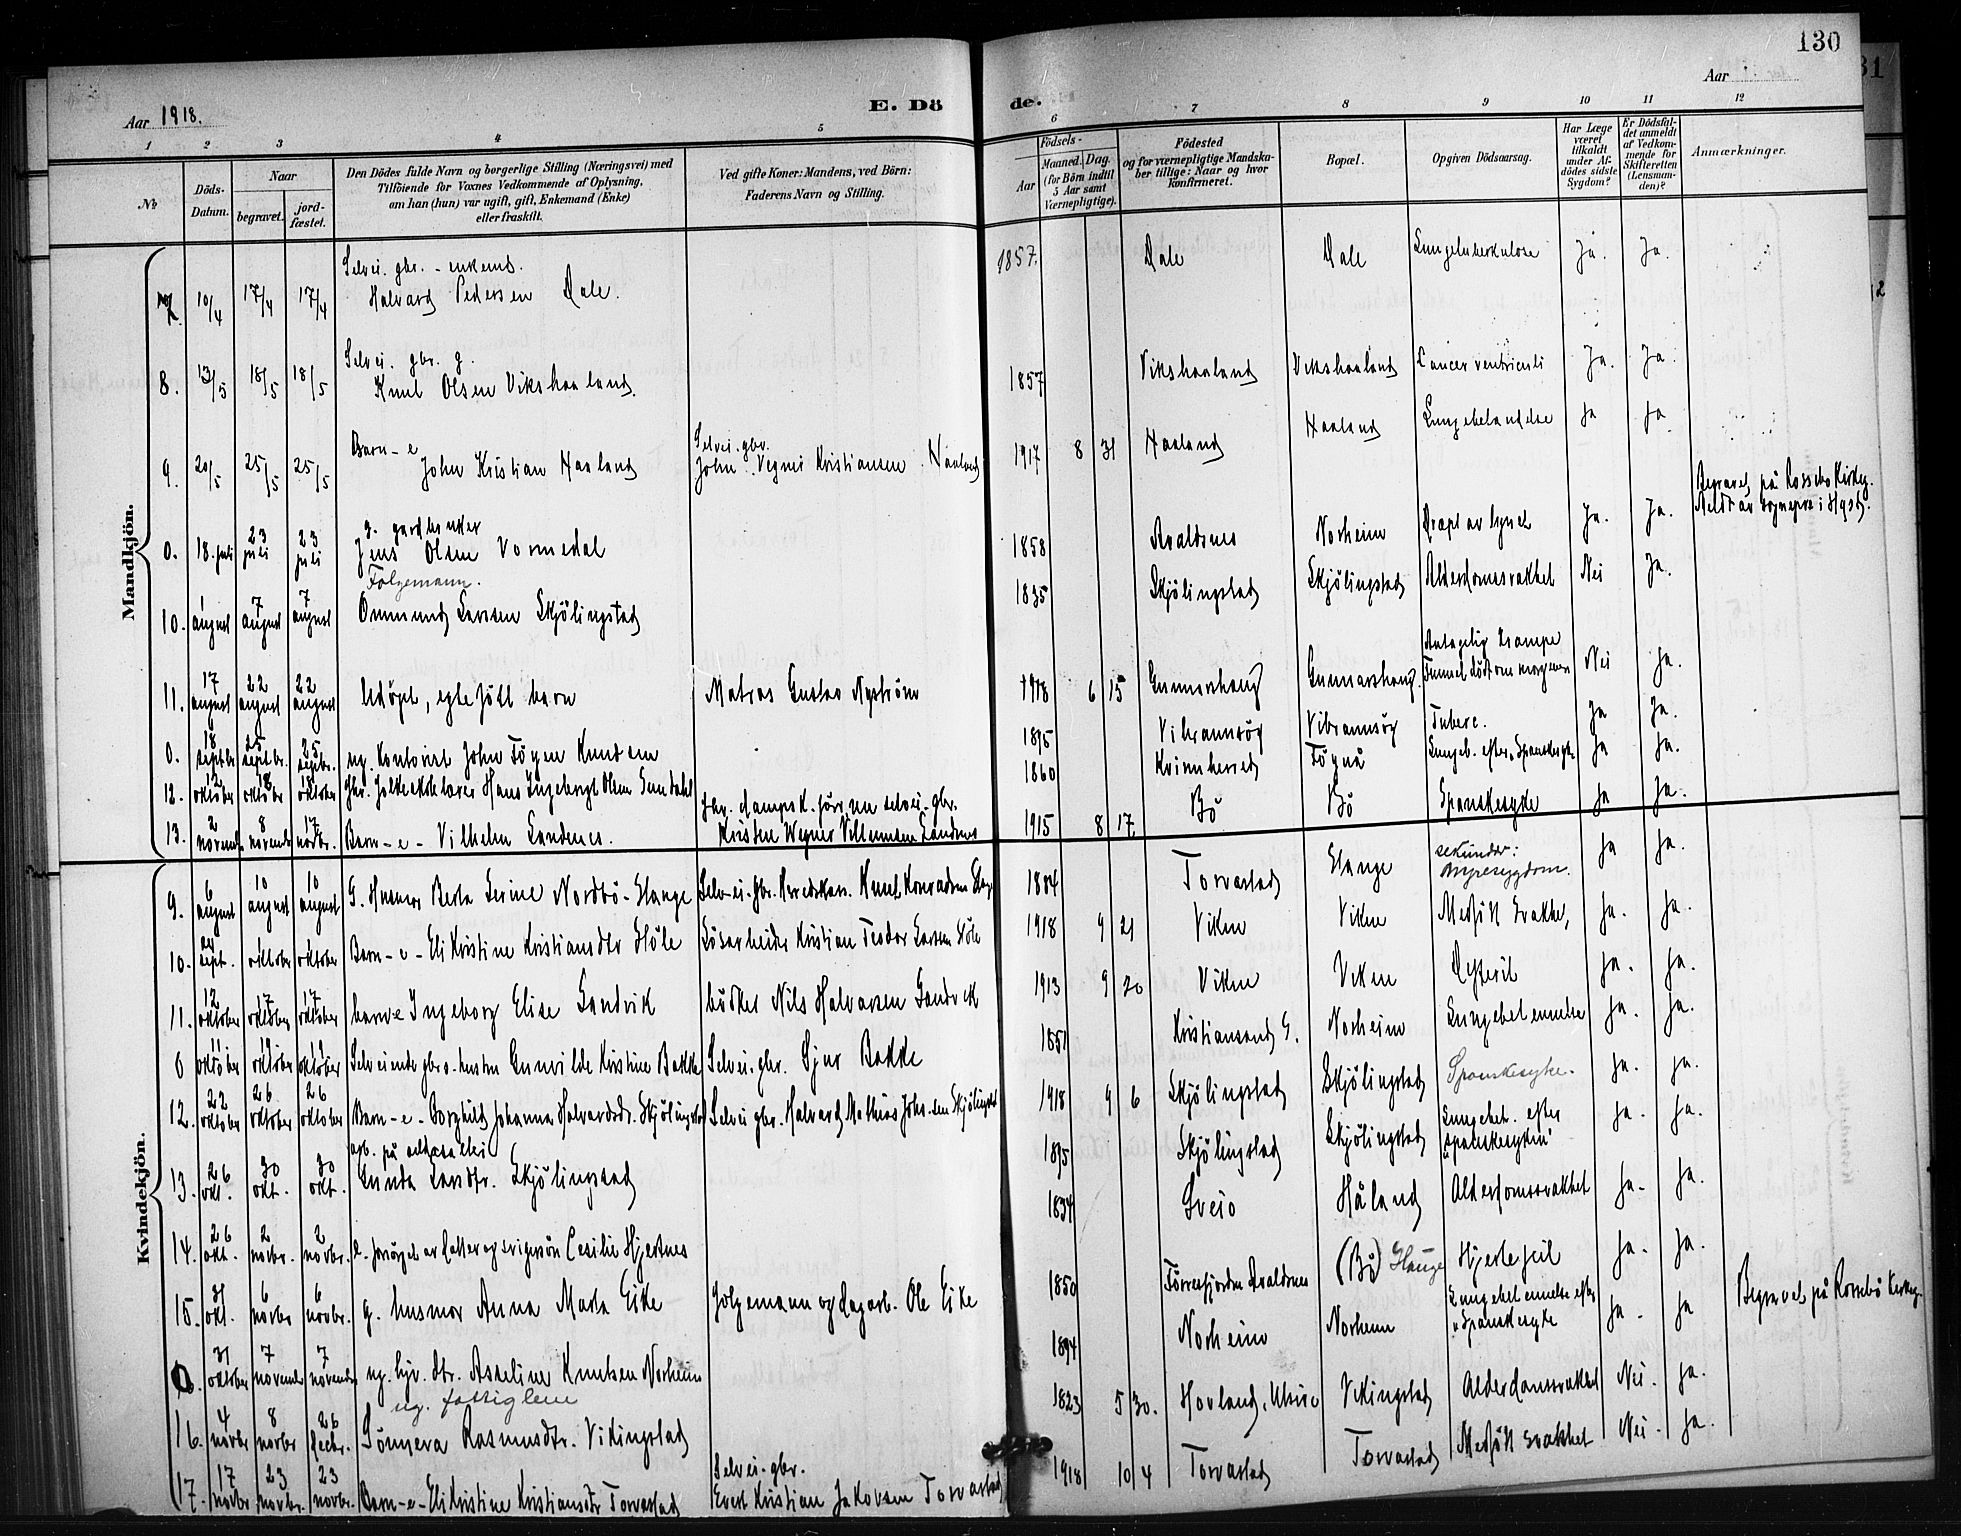 130
Aar 1918.
E. Dö
de.
Aar
1 2 3 4 5 6 7 8 9 10 11 12
№
Döds-
Datum.
Naar
begravet.
jord-
fæstet.
Den Dödes fulde Navn og borgerlige Stilling (Næringsvei) med
Tilföiende for Voxnes Vedkommende af Oplysning,
om han (hun) var ugift, gift, Enkemand (Enke)
eller fraskilt.
Ved gifte Koner: Mandens, ved Börn:
Faderens Navn og Stilling.
Födsels-
Aar
Maaned. Dag.
(for Börn indtil
5 Aar samt
Værnepligtige).
Födested
og for værnepligtige Mandska-
ber tillige: Naar og hvor
konfirmeret.
Bopæl.
Opgiven Dödsaarsag.
Har Læge
været
tilkaldt
under Af-
dödes sidste
Sygdom?
Er Dödsfal-
det anmeldt
af Vedkom-
mende for
Skifteretten
(Lensman-
den)?
Anmærkninger.
Mandkjön.
Selvei. gbr. - enkem.
7. 10/4 17/4 17/4 Halvard Pedersen Dale. 1857. Dale Dale Lungetuberkulose Ja. Ja.
Selvei. gbr. g.
8. 13/5 18/5 18/5 Knut Olsen Vikshaaland. 1857 Vikshaaland Vikshaaland Cancer ventriculi Ja. Ja.
Barn - e Selvei. gbr.
9. 20/5 25/5 25/5 John Kristian Haaland John Kristiansen Haaland 1917 8 31 Haaland Haaland Lungebetændelse Ja Ja.
g. gardbruker
0. 18. juli 23 juli 23 juli Jens Olsen Vormedal 1858 Avaldsnes Norheim Dræpt av lynet Ja. Ja. Begravet på Rossebö Kirkeg.
Meldt av sognepr. i
Folgemann.
10. 1 august 7 august 7 august Ommund Larsen Skjölingstad 1835 Skjölingstad Skjölingstad Alderdomssvakhet Nei Ja.
11. 17 august 22 august 22 august Udöpt, egtefött barn Matros Gustav Nyström 1918 6 15 Gunnarshaug Gunnarshaug. Antagelig krampe
Funnet död om morgenen Nei Ja.
0. 18 septbr 25 septbr. 25 septbr. ug. Kontorist John Fögen Knudsen 1895 Vibrandsöy Vibrandsöy Tuberc. Ja Ja.
12. 12 oktober 18 oktober 18 oktober Gbr. Hans Ingebrigt Olsen 1860 Kvinnherred Föyna Lungeb. efter "Spanskesyke" Ja Ja.
13. 2 novemb 8 novemb 17 novbr. Barn - e - Vilhelm Sandnes. selvei. gbr.
Kristen Wegner Villumsen Sandnes 1915 8 17 Bö Bö Spanskesyke Ja Ja.
Kvindekjön.
9. 6 august 10 august 10 august G. Husmor Berta Serine Nordbö - Stange Selv-ei. gbr. Knut Konradsen Stange 1884 Torvastad Stange sekundær:
Nyresygdom. Ja Ja.
10. sept. 1 oktober 1 oktober Barn - e - Eli Kristine Kristiansdtr Stöle Lösarbeider Kristian Teodor Larsen Stöle 1918 9 21 Viken Viken Medfött svakhet, Ja. Ja.
11. 12 oktober 17 oktober 17 oktober barn-e Ingeborg Elise Sandvik bödker Nils Halvorsen Sandvik 1913 9 20 Viken Viken Dyfteri Ja. Ja.
0 11 oktober 19 oktober 19 oktober Selveiende gbr.s. hustru Gunvilde Kristine Bakke Selvei. gbr. Sjur Bakke 1851 Kristiansand S. Norheim Lungebetennelse Ja. Ja.
12. 22 oktober 26 oktober 26 oktober Barn - e - Borghild Johanna Halvardsdr. Skjölingstad Selvei gbr. Halvard Mathias Skjölingstad 1918 9 6 Skjölingstad Skjölingstad Spanskesyke. Ja. Ja.
13. 26 okt. 30 okt. 30 okt. Gunda Larsdtr. Skjölingstad 1895 Skjölingstad Skjölingstad Lungebet. efter
"Spanskesyken" Ja. Ja.
14. 26 okt. 2 novbr. 2 novbr. e. forsörget av datter og svigersön Cesilie Hjertnes 1834 Sveio Håland Alderdomssvakhet Ja. Ja.
15. 31 okt. 6 novbr 6 novbr. g. husmor Anna Marta Eike Folgemann og dagarb. Ole Eike 1850 Förresfjorden Avaldsnes (Bö) Hauge Hjertefeil Ja. Ja.
0. 31 oktober 7 novemb 7 novemb ug. hjv. dtr. Asseline Knutsen Norheim 1894 Norheim Norheim Lungebetennelse efter
"Spanskesyke Ja. Ja Begravet på Rossebö Kirkeg.
ug. fattiglem
16. 4 novbr 8 novbr 26 decbr. Sönneva Rasmusdtr. Vikingstad 1823 5 30. Hovland, Utsire Vikingstad Alderdomssvakhet Nei. Ja.
Selvei. gbr.
17. 17 novbr 23 novbr. 23 novbr. Barn - e - Eli Kristine Kristiansdtr Torvastad Kristian Jakobsen Torvastad 1918 10 4 Torvastad Torvastad Medfött svakhet Nei. Ja.